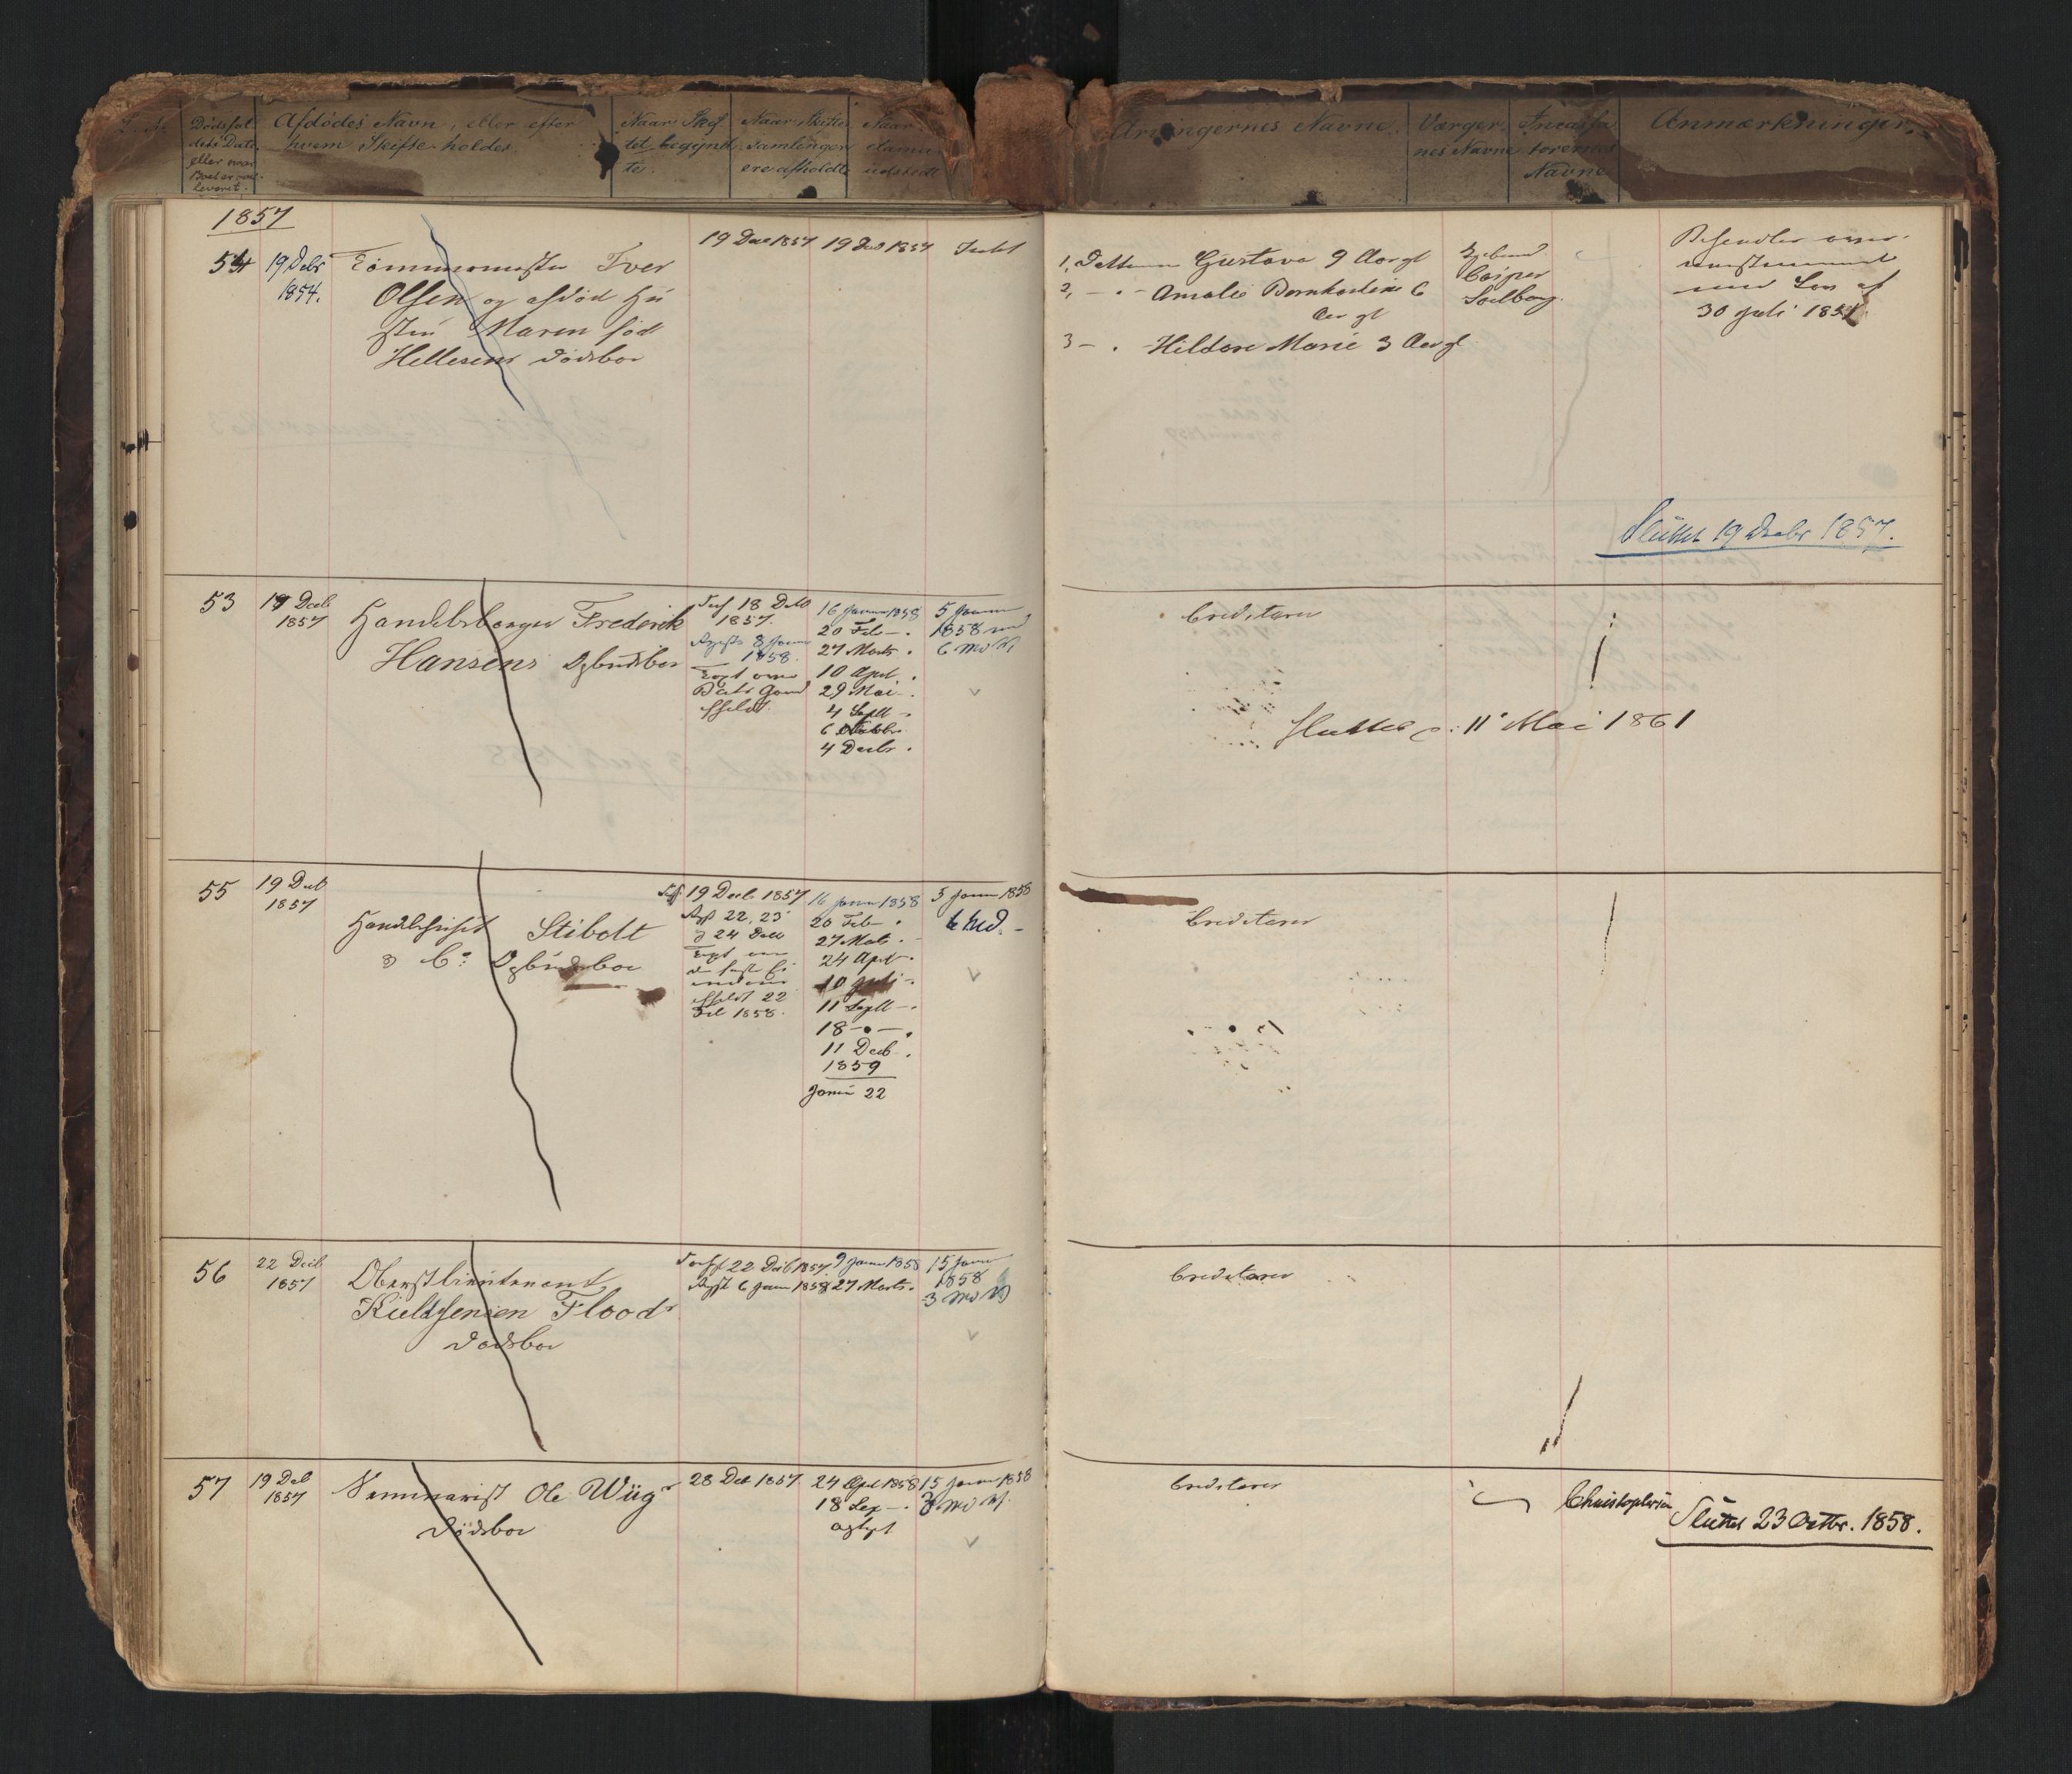 Dødsfal-
dets Dato
eller over
Boet er over-
leveret.
Afdødes Navn, eller efter
hvem Skifte holdes.
Naar Skif
tet begynd
te.
Naar Skifte
samlingen
ere afholdte
Naar
udstedt
Arvingernes Navne.
Værger
nes Navne
Incassa
torernes
Navne
Anmærkninger.
1857
54
19 Debr
1854.
Tømmermester Iver
Olsen og afdød Hu
stru Maren fød
Hellesens Dødsbo
19 Dec 1857
19 Dec 1857
Intet
1, Datteren Gustava 9 Aar gl
2, — " — Amalie Bernhardine 6
Aar gl
3 — . — Hildore Marie 3 Aar gl
Casper
Solberg.
Behandles over-
med Lov af
30 Juli 1851
Sluttet 19 Decbr 1857.
53
19 Decb
1857
Handelsborger Frederik
Hansens Opbudsbo
18 Decb
1857.
8 Janu
1858.
16 Janu 1858
20 Feb — .
27 Marts .
10 April .
29 Mai — .
4 Septb — .
6 Octobr.
4 Decbr .
5 Janu
1858 med
6 Md V
Creditorer
Sluttet d: 11' Mai 1861
55
19 Decb
1857
Handelshuset Stibolt
& Co. Opbudsbo
19 Decb 1857
22, 23
& 24 Decb
22
Feb 1858.
16 Janu 1858
20 Feb — .
27 Mats .
24 April .
10 Juli — .
11 Septb — .
18 — " — .
11 Decb .
1859
Janu 22
5 Janu 1858
6 Md. —
Creditorer
56
22 Decb
1857
Oberstlieutenant
Kieldsenien Floods
Dødsbo
22 Decb 1857
6 Janu 1858
9 Janu 1858
27 Marts .
15 Janu
1858
3 Md V
Creditorer
57
19 Deb
1857
Seminarist Ole Wiigs
Dødsbo
28 Dec 1857
24 April 1858
18 Sep — .
15 Janu 1858
3 Md V.
Creditorer
Christophersen
Sluttet 23 Octbr. 1858.